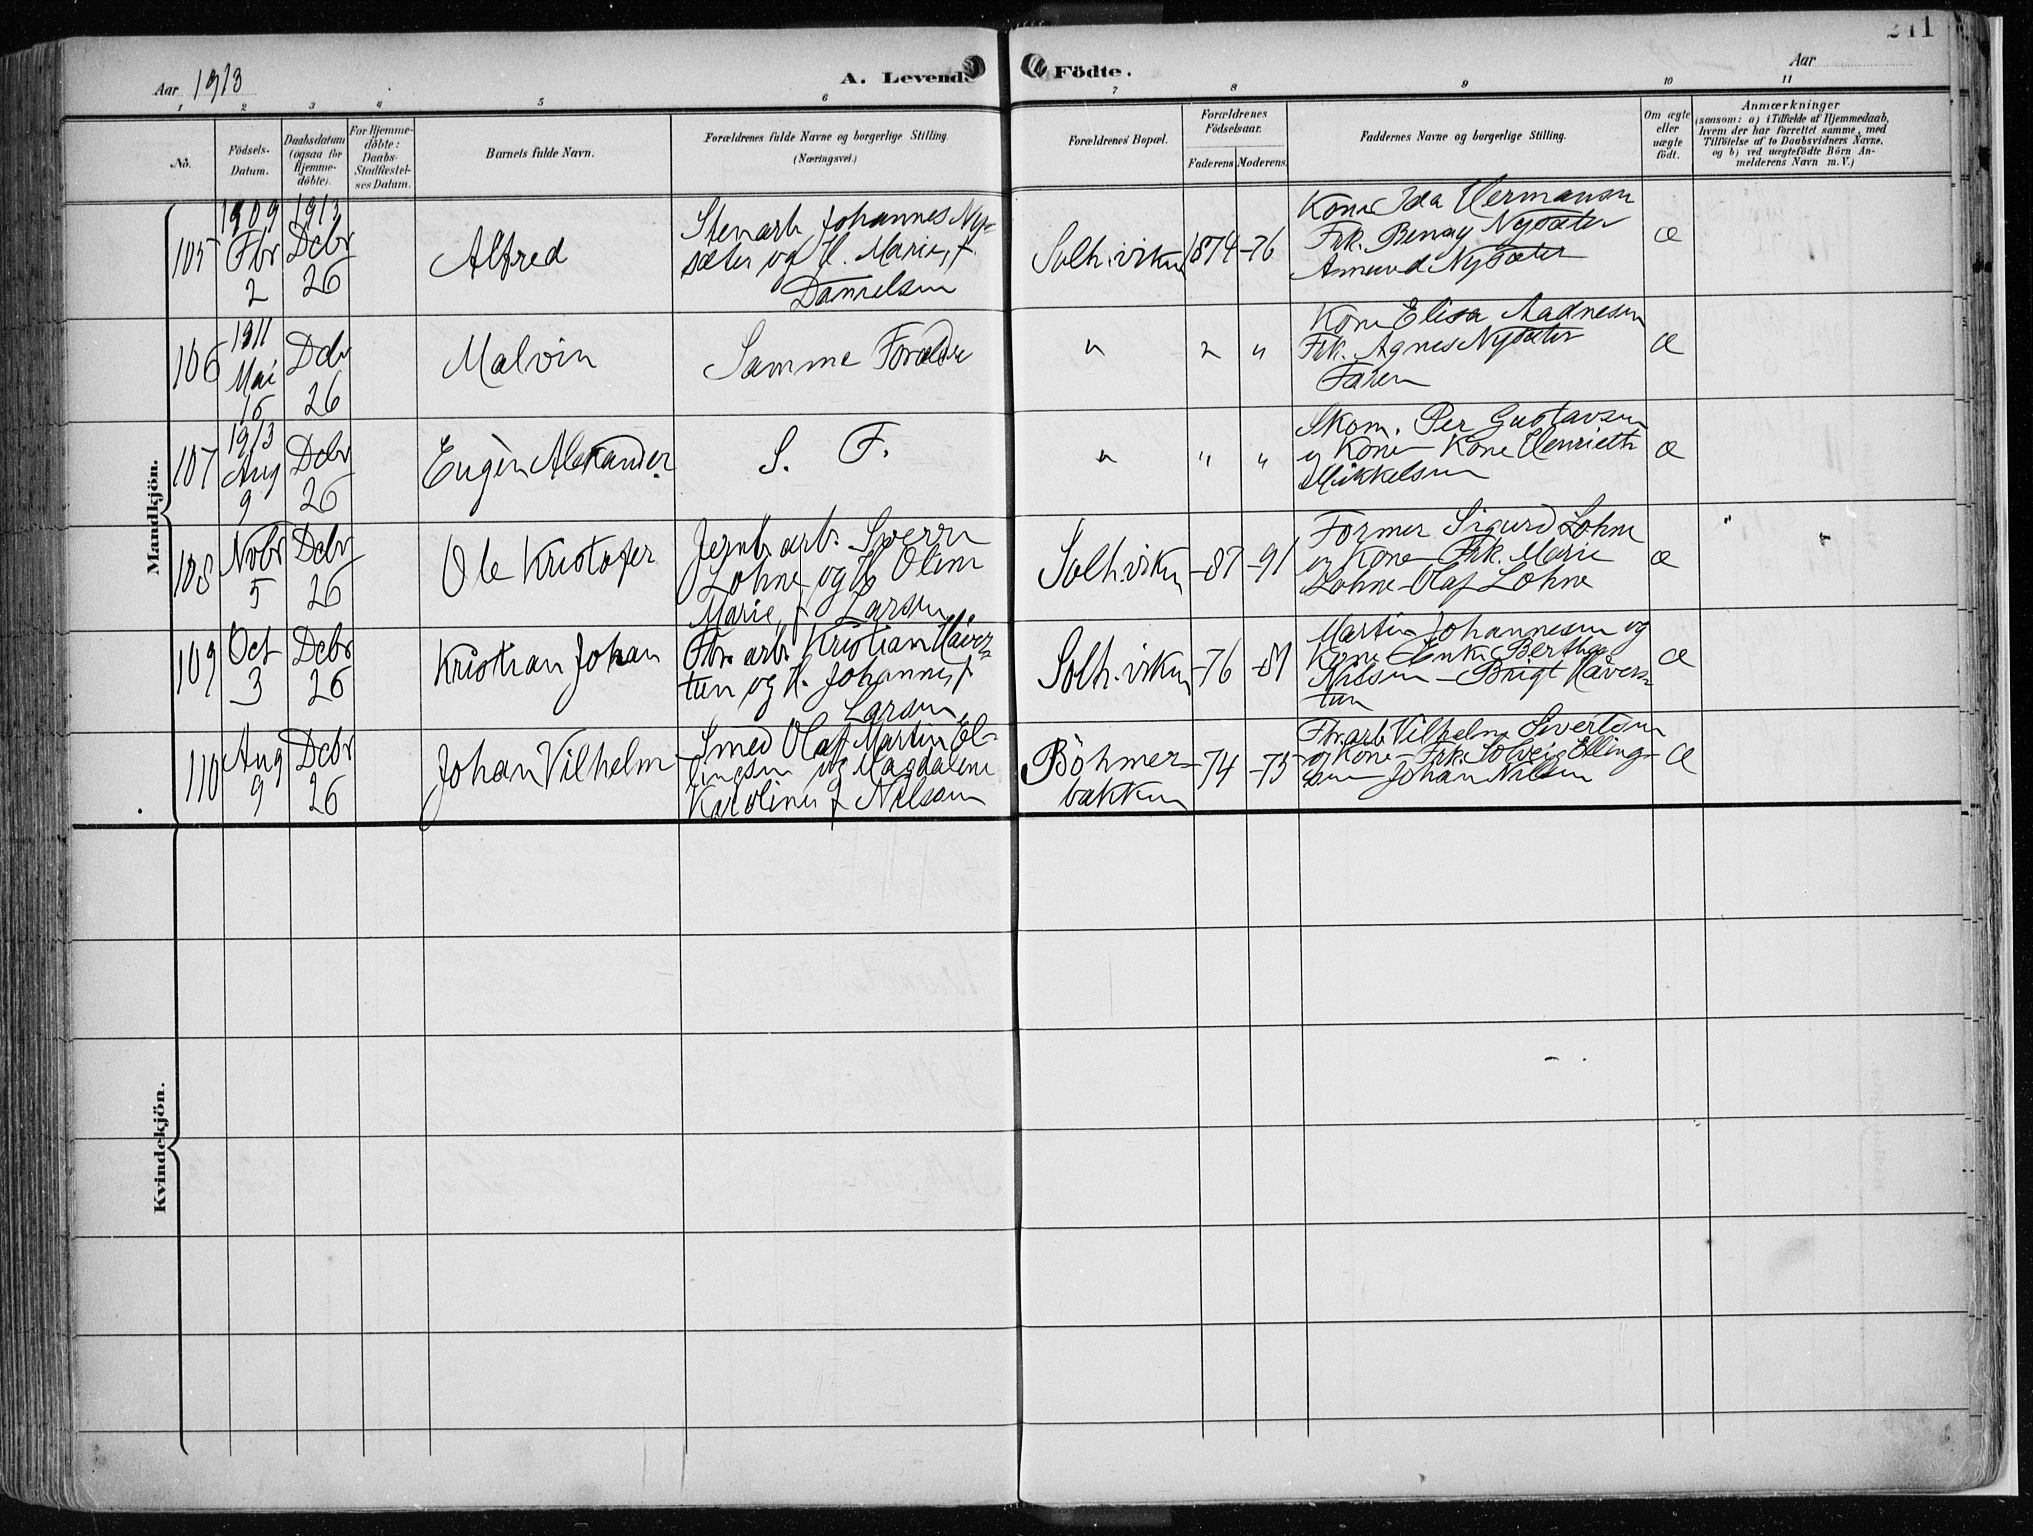 241
Aar 1913
A. Levende Födte.
Aar
1 2 3 4 5 6 7 8 9 10 11
Nò.
Födsels-Datum.
Daabsdatum (ogsaa for Hjemmedöbte).
For Hjemmedöbte: Daabs-Stadfæstelses Datum.
Barnets fulde Navn.
Forældrenes fulde Navne og borgerlige Stilling. (Næringsvei.)
Forældrenes Bopæl.
Forældrenes Födselsaar.
Faderens. Moderens.
Faddernes Navne og borgerlige Stilling.
Om ægte eller uægte födt.
Anmærkninger
(saasom: a) i Tilfælde af Hjemmedaab, hvem der har forrettet samme, med Tilföielse af to Daabsvidners Navne, og b) ved uægtefödte Börn Anmelderens Navn m. V.)
Mandkjön.
105
1909 Fbr 2
1913 Dcbr 26
Alfred
Stenarb. Johannes Ny-
sæter og H. Marie, f.
Danielsen
Solh.viken
1874 -76
Kone Ida Hermansen
Frk. Benny Nysæter
Amund Nysæter
æ
106
1911 Mai 15
Dcbr 26
Malvin
Samme Forældre
" " "
Kone Elisa Aadnesen
Frk. Agnes Nysæter
Faren
æ
107
1913 Aug 9
Dcbr 26
Eugèn Alexander
S. F.
" " "
Skom. Per Gustavsen
og Kone - Kone Henriette
Mikkelsen
æ
108
Novbr 5
Dcbr 26
Ole Kristofer
Jernb. arb. Sverre
Lohne og H. Oline
Marie, f. Larsen
Solh.viken
-87 -91
Former Sigurd Lohne
og Kone - Frk. Marie
Lohne - Olaf Lohne
æ
109
Oct 3
Dcbr 26
Kristian Johan
Fbr. arb. Kristian Haver-
tun og H. Johanne, f.
Larsen
Solh.viken
-76 -81
Martin Johannesen og
Kone - Enke Bertha
Nilsen - Brigt Haver-
tun
æ
110
Aug 9
Dcbr 26
Johan Vilhelm
Smed Olaf Martin El-
lingsen og Magdalene
Karoline f. Nilsen
Böhmer-
bakken
-74 -73
Fbr. arb. Vilhelm Sivertsen
og Kone - Frk. Solveig Elling-
sen - Johan Nilsen
æ
Kvindekjön.